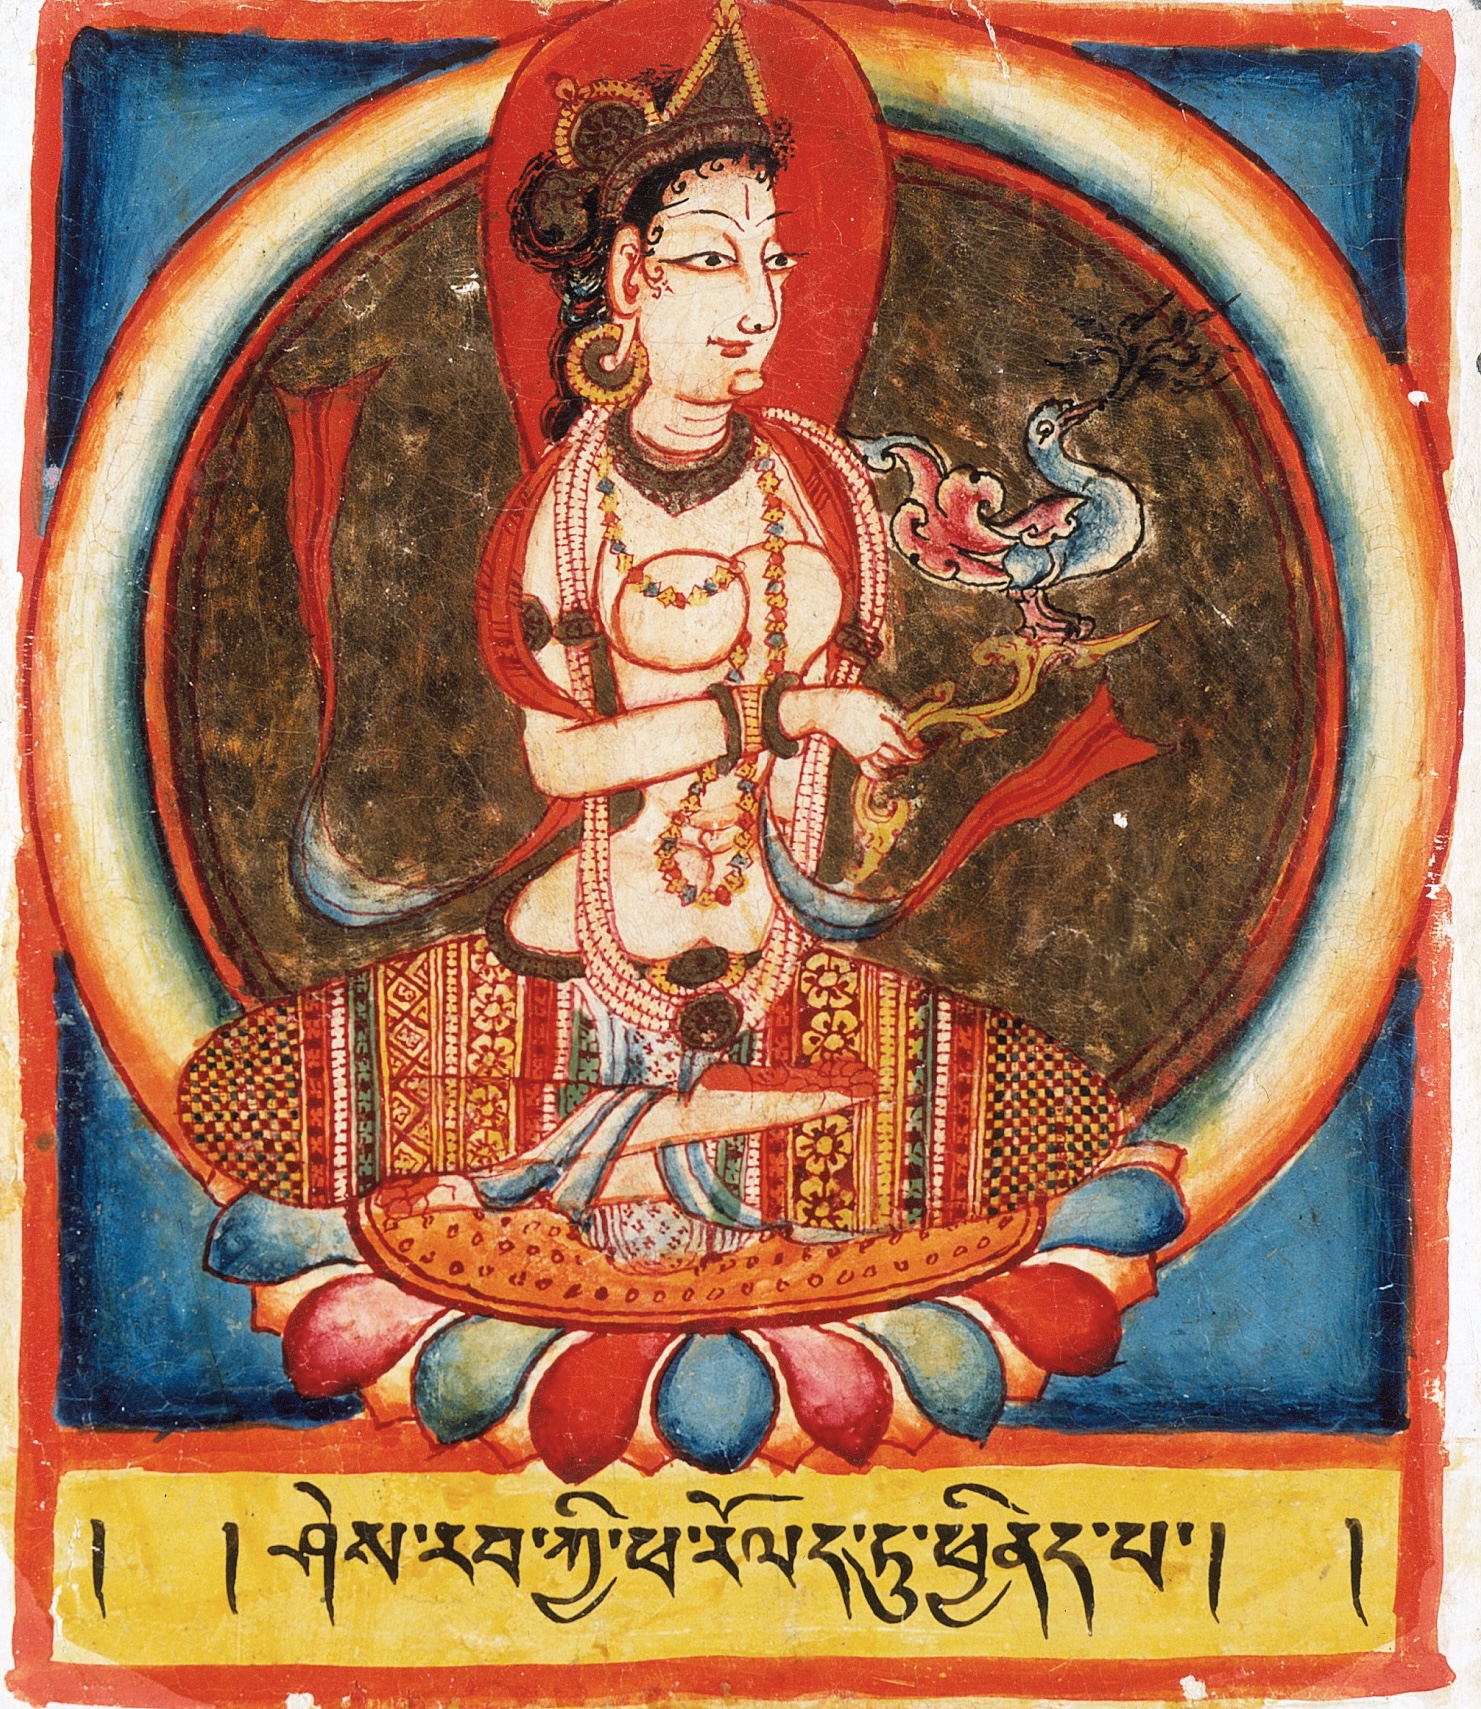 ། །ཤེས་རབ་ཀྱི་ཕ་རོལ་ད་ཏུ་ཕྱིནེད་པ་། །